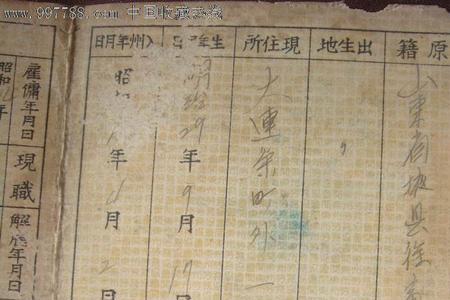 www.997788.com 中国收藏热线
原籍
山東省掖县徐
出生地
〃
現住所
大連
町外
一
生年月日
明治29年9月17
州年月日
昭
年
月2
雇傭年月日
昭和
年
現職
年月日